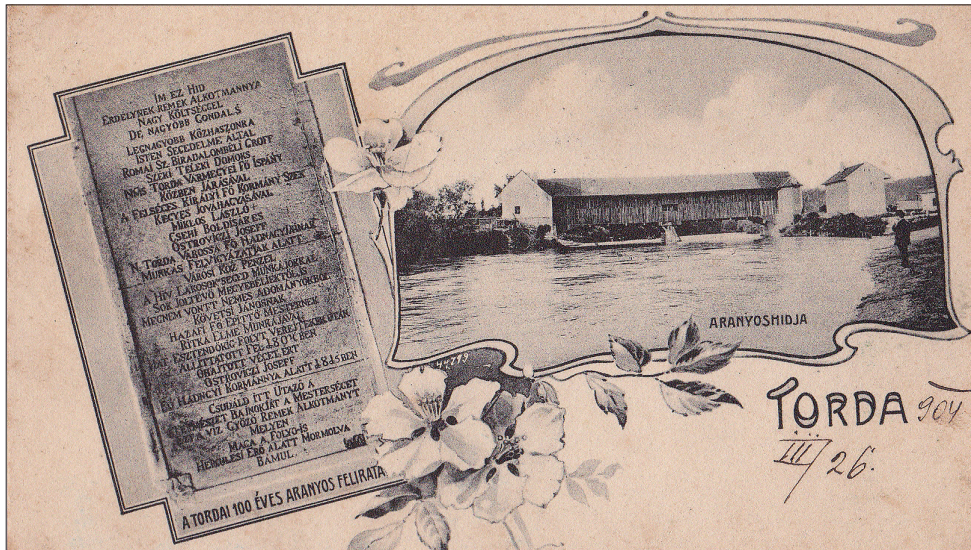 IM EZ HID
ERDELYNEK REMEK ALKOTMANNYA
NAGY KÖLTSÉGGEL
DE NAGYOBB GONDAL S
LEGNAGYOBB KÖZHASZONRA
ISTEN SEGEDELME ÁLTAL
ROMAI SZ. BIRADALOMBÉLI GROFF
SZÉKI TELEKI DOMOKS
NGS TORDA VÁRMEGYEI FŐ ISPÁNY
KÖZBEN JÁRÁSÁVAL
A FELSÉGES KIRÁLYI FŐ KORMÁNY SZÉK
KEGYES JOVÁHAGYÁSÁVAL
MIKLOS LÁSZLÓ
CSEHI BOLDISÁR ES
OSTROVICZI JOSEFF
N. TORDA VÁROSSA FŐ HADNAGYJAINAK
MUNKÁS FELVIGYÁZATJOK ALATT
VÁROSI KÖZ PÉNZEL
A HIV LAKOSOK SEGED MUNKÁJOKKAL
SOK JOLTEVŐ
MEGNEM VONTT NEMES ADOMÁNYOKBOL
KÖVETSI JÁNOSNAK
HAZAFI FŐ ÉPITTŐ MESTERNEK
RITKA ELME MUNKÁJÁVAL
ESZTENDŐKIG FOLYT VEREJTÉK
ÁLLITTATOTT FEL
OHAJTOTT VÉGET ÉRT
OSTROVICZI JOSEFF
HADNGYI KORMÁNNYA ALATT 1815 BEN
CSUDÁLD ITT UTAZÓ A
BAJNOKJÁT A MESTERSÉGET
A VIZ GYŐZŐ REMEK ALKOTMÁNYT
MELYEN
MAGA A FOLYO IS
HERCULESI ERŐ ALATT MORMOLVA
BÁMUL.
A TORDAI 100 ÉVES ARANYOS FELIRATA
ARANYOSHIDJA
TORDA 904
III/26.